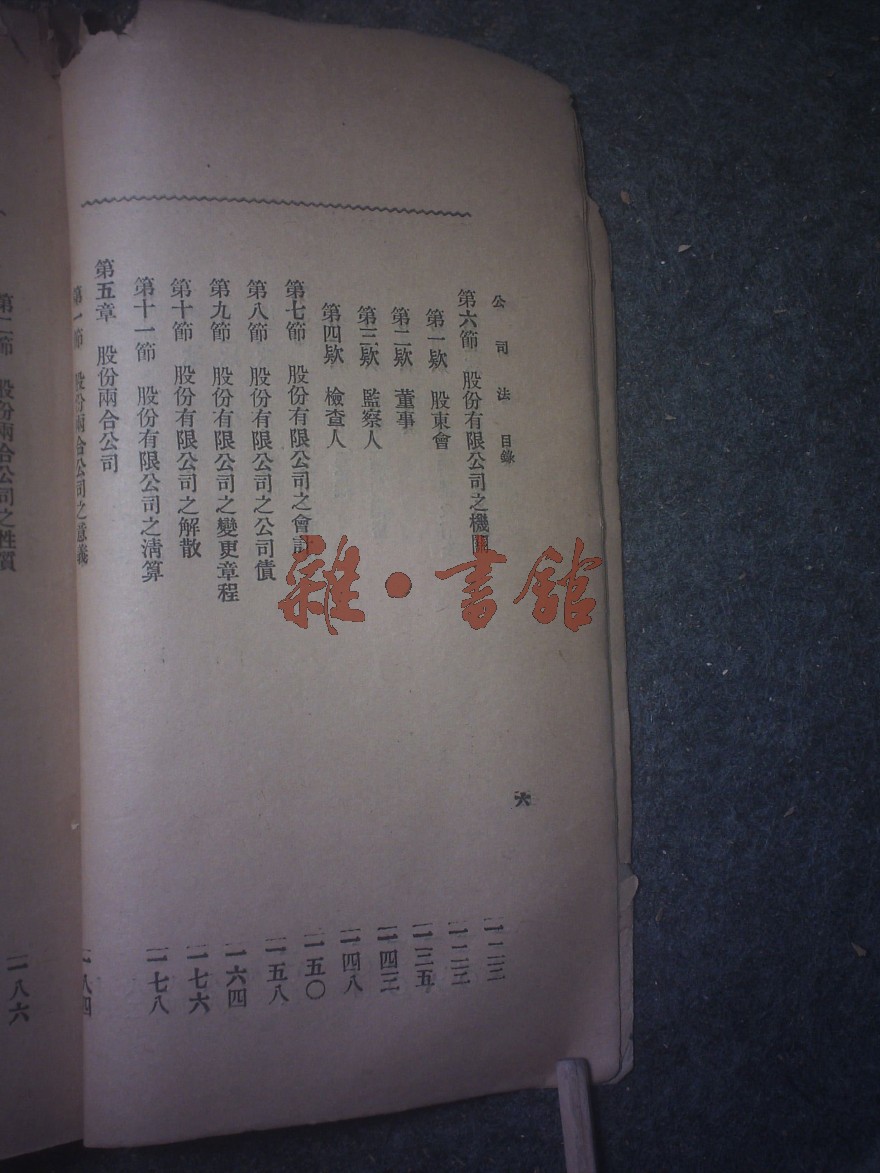 公司法 目錄 六
第六節 股份有限公司之機關 一二三
第一欵 股東會 一二三
第二欵 董事 一三五
第三欵 監察人 一四三
第四欵 檢查人 一四八
第七節 股份有限公司之會計 一五〇
第八節 股份有限公司之公司債 一五八
第九節 股份有限公司之變更章程 一六四
第十節 股份有限公司之解散 一七六
第十一節 股份有限公司之淸算 一七八
第五章 股份兩合公司
第一節 股份兩合公司之意義 一八四
第二節 股份兩合公司之性質 一八六
雜·書館